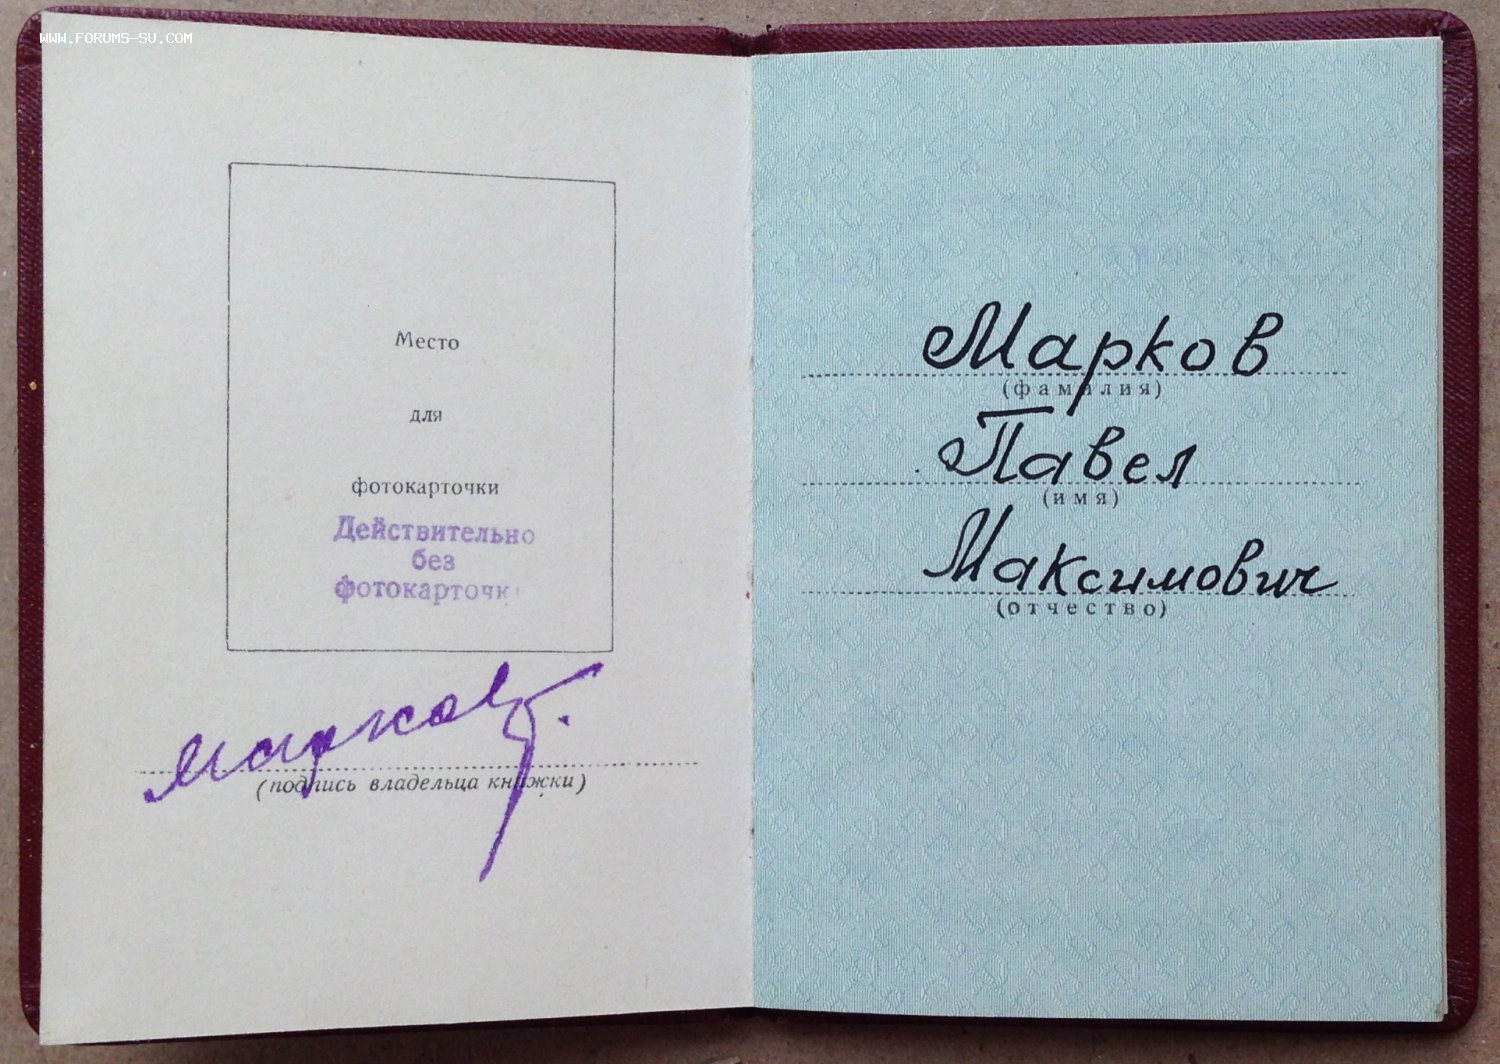 WWW.FORUMS-SU.COM
Место
для
фотокарточки
Действительно
без
фотокарточки
Марков
(подпись владельца книжки)
Марков
(фамилия)
Павел
(имя)
Максимович
(отчество)